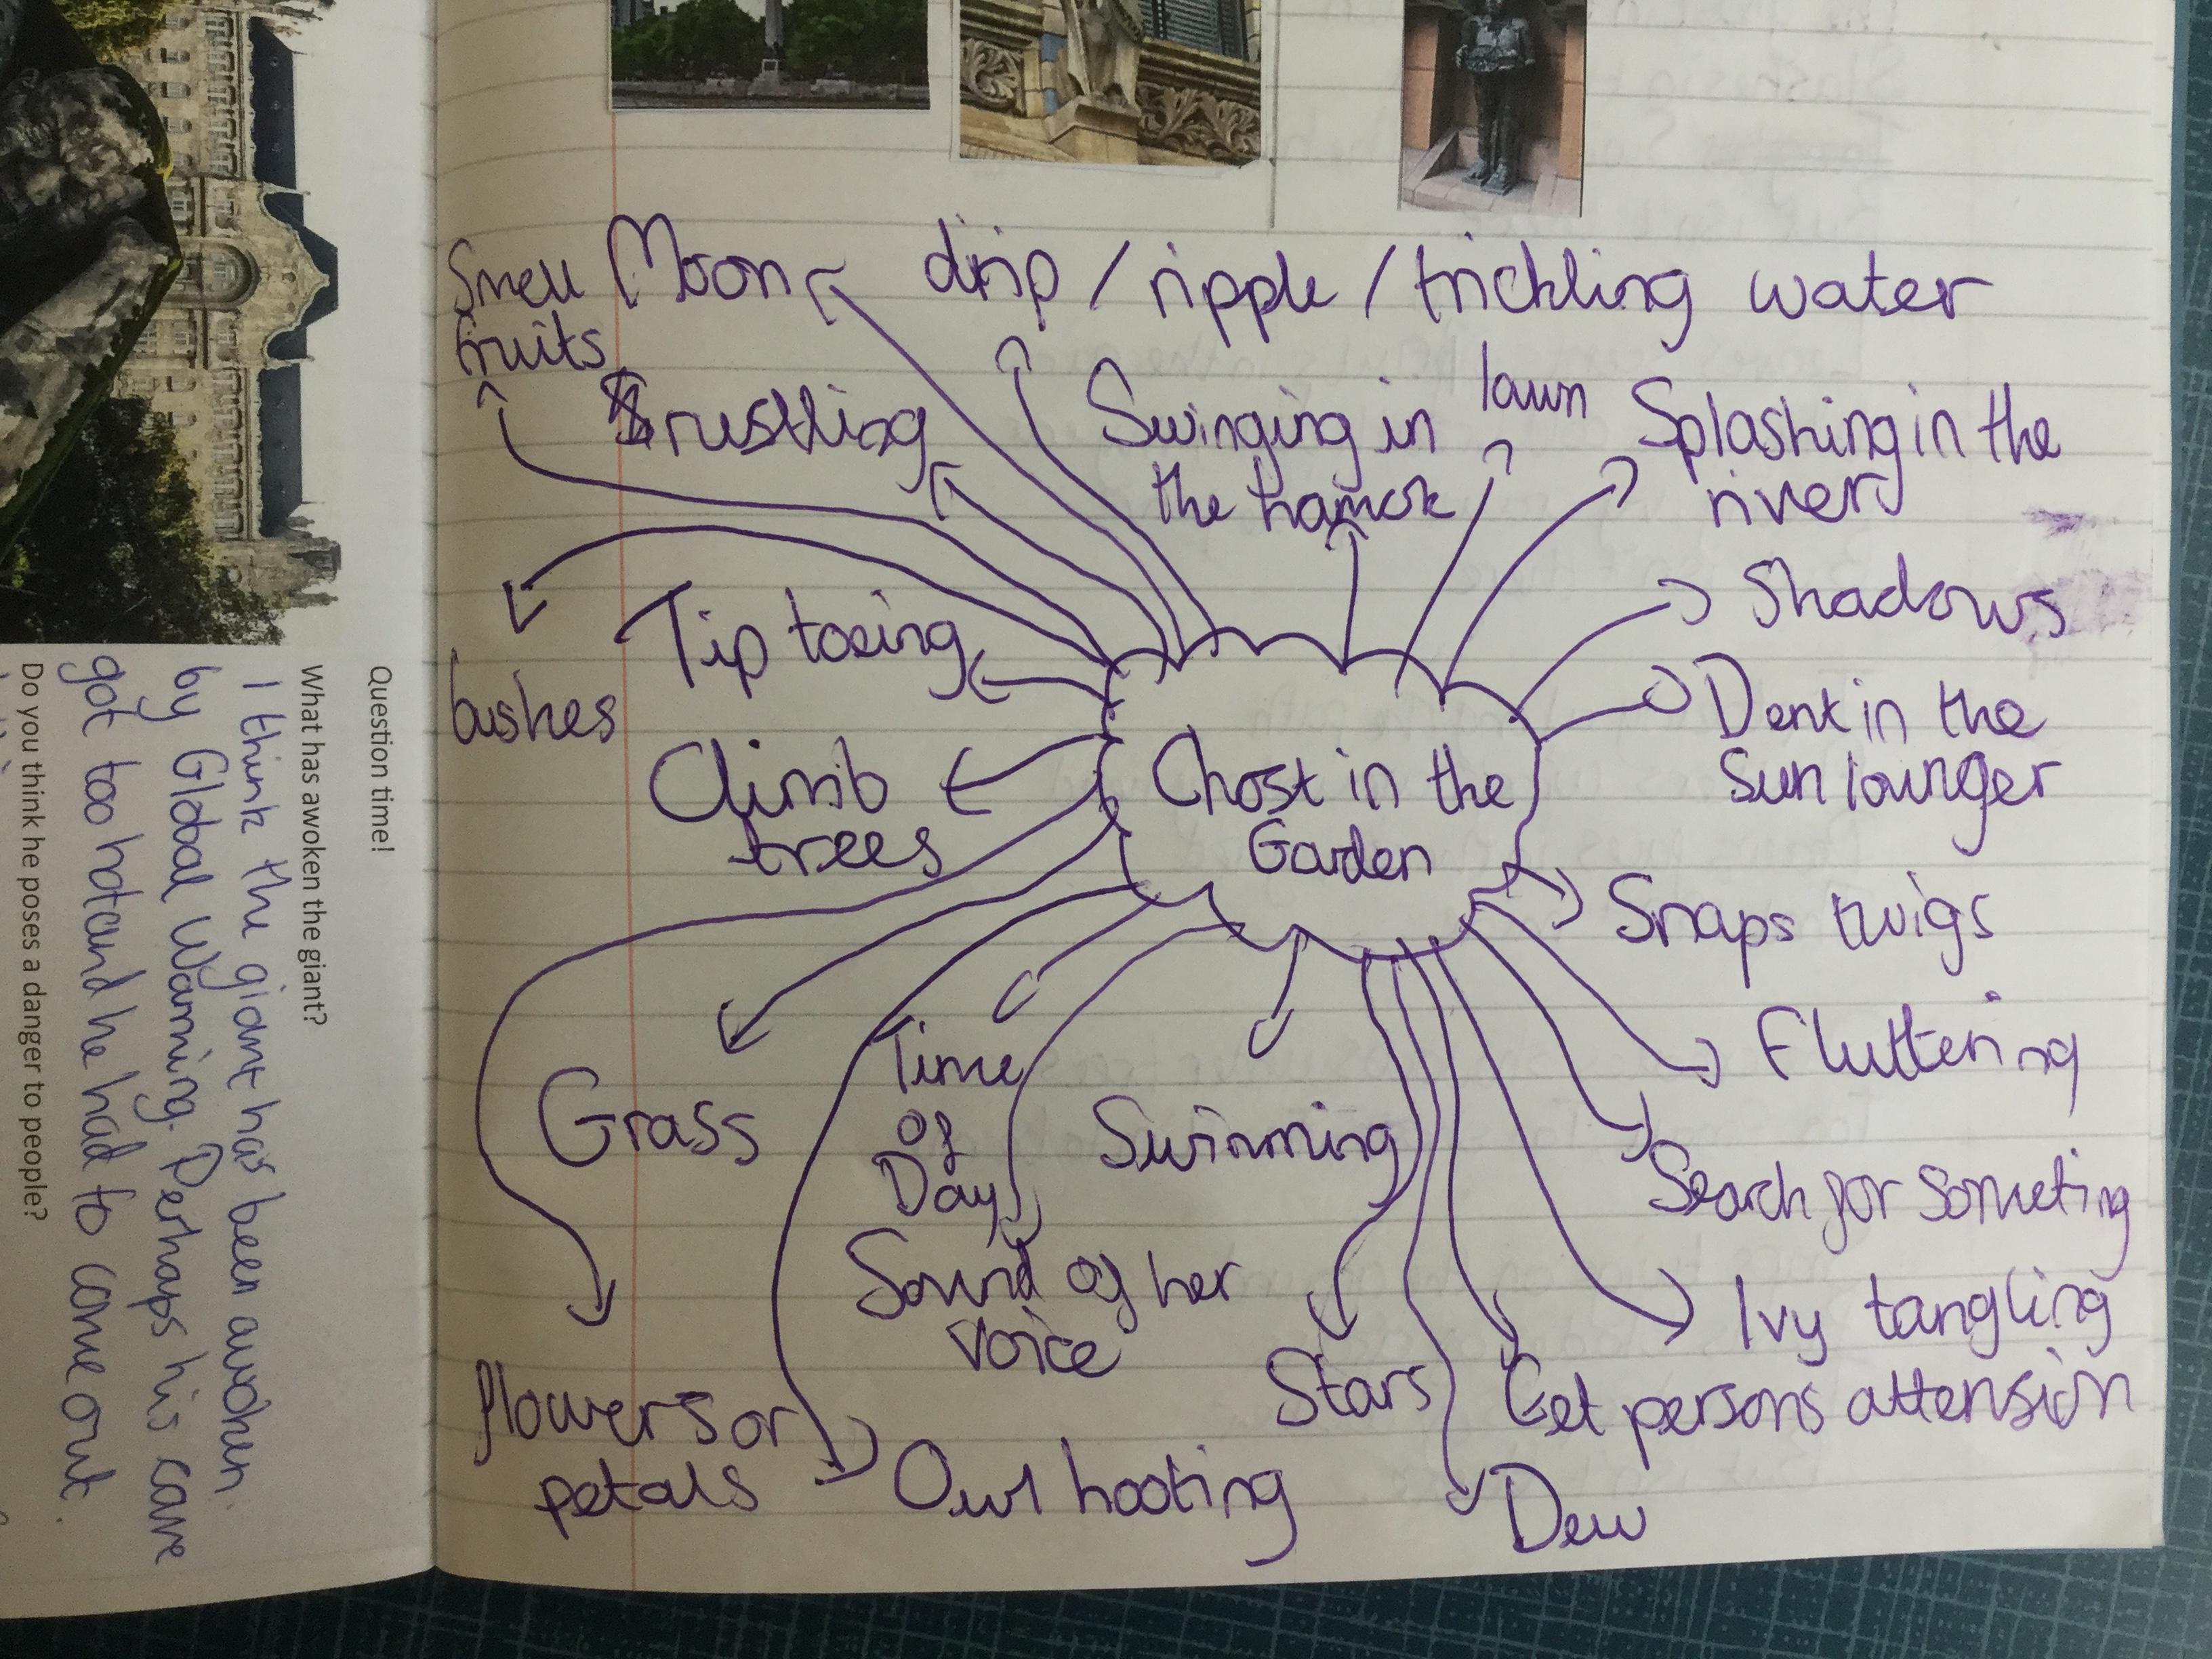 Smell
fruits
Moon
drip / ripple / trickling water
rustling
Swinging in
the hamok
lawn
Splashing in the
river
Shadows
bushes
Tip toeing
Dent in the
Sun lounger
Climb
trees
Ghost in the
Garden
Snaps twigs
Fluttering
Grass
Time
of
Day
Swimming
Search for someting
Sound of her
voice
Ivy tangling
Stars
Get persons attension
flowers or
petals
Owl hooting
Dew
Question time!
What has awoken the giant?
I think the giant has been awoken
by Global Warming. Perhaps his cave
got too hot and he had to come out.
Do you think he poses a danger to people?